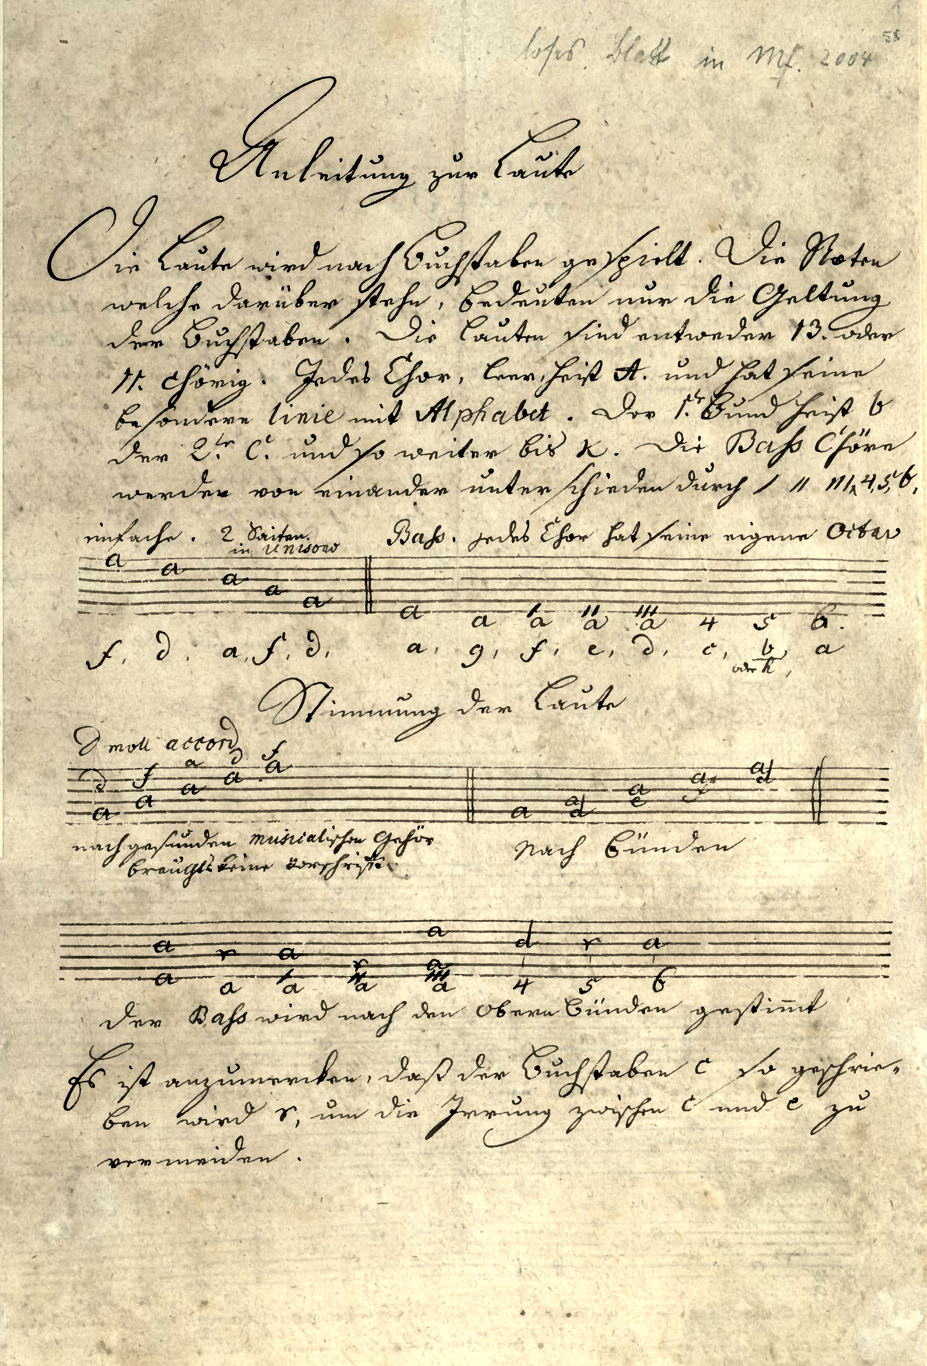 58
loses Blatt in Mf. 2004
Anleitung zur Laute
Die Laute wird nach Buchstaben gespielt. Die Noten
welche darüber stehn, bedeuten nur die Geltung
der Buchstaben. Die Lauten sind entweder 13. oder
11. chörig. Jedes Chor, leer, heist A. und hat seine
besondere linie mit Alphabet. Der 1.te Bund heist b
der 2.te C. und so weiter bis K. Die Bass Chöre
werden von einander unterschieden durch / // ///, 4, 5, 6,
einfache. 2 Saiten. Bass. jedes Chor hat seine eigene Octav
in Unisono
a a a a a
a a /a //a ///a 4 5 6.
f, d, a, f, d, a, g, f, e, d, c, b, a
oder h,
Stimmung der Laute
D moll accord
d f a d f
a a a a a a a a a a
d e f d
nach gesunden musicalischen Gehör
brauchts keine Vorschrift. Nach Bünden
a r a r a d r a
a a /a //a ///a 4 5 6
der Bass wird nach den Obern Bünden gestim̅t
Es ist anzumercken, daß der Buchstaben c so geschrie-
ben wird r, um die Irrung zwischen c und e zu
vermeiden.